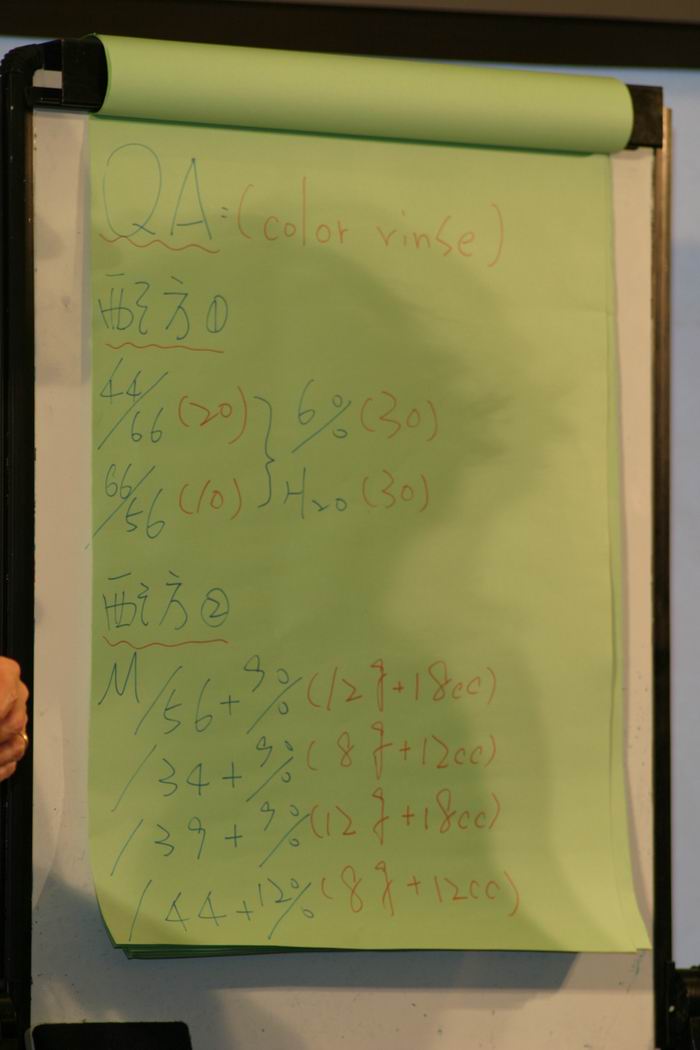 QA:(color rinse)
配方①
44/66 (20)} 6% (30)
66/56 (10)} H2O (30)
配方②
M/56+9% (12g+18cc)
/34+9% (8g+12cc)
/39+9% (12g+18cc)
/44+12% (8g+12cc)